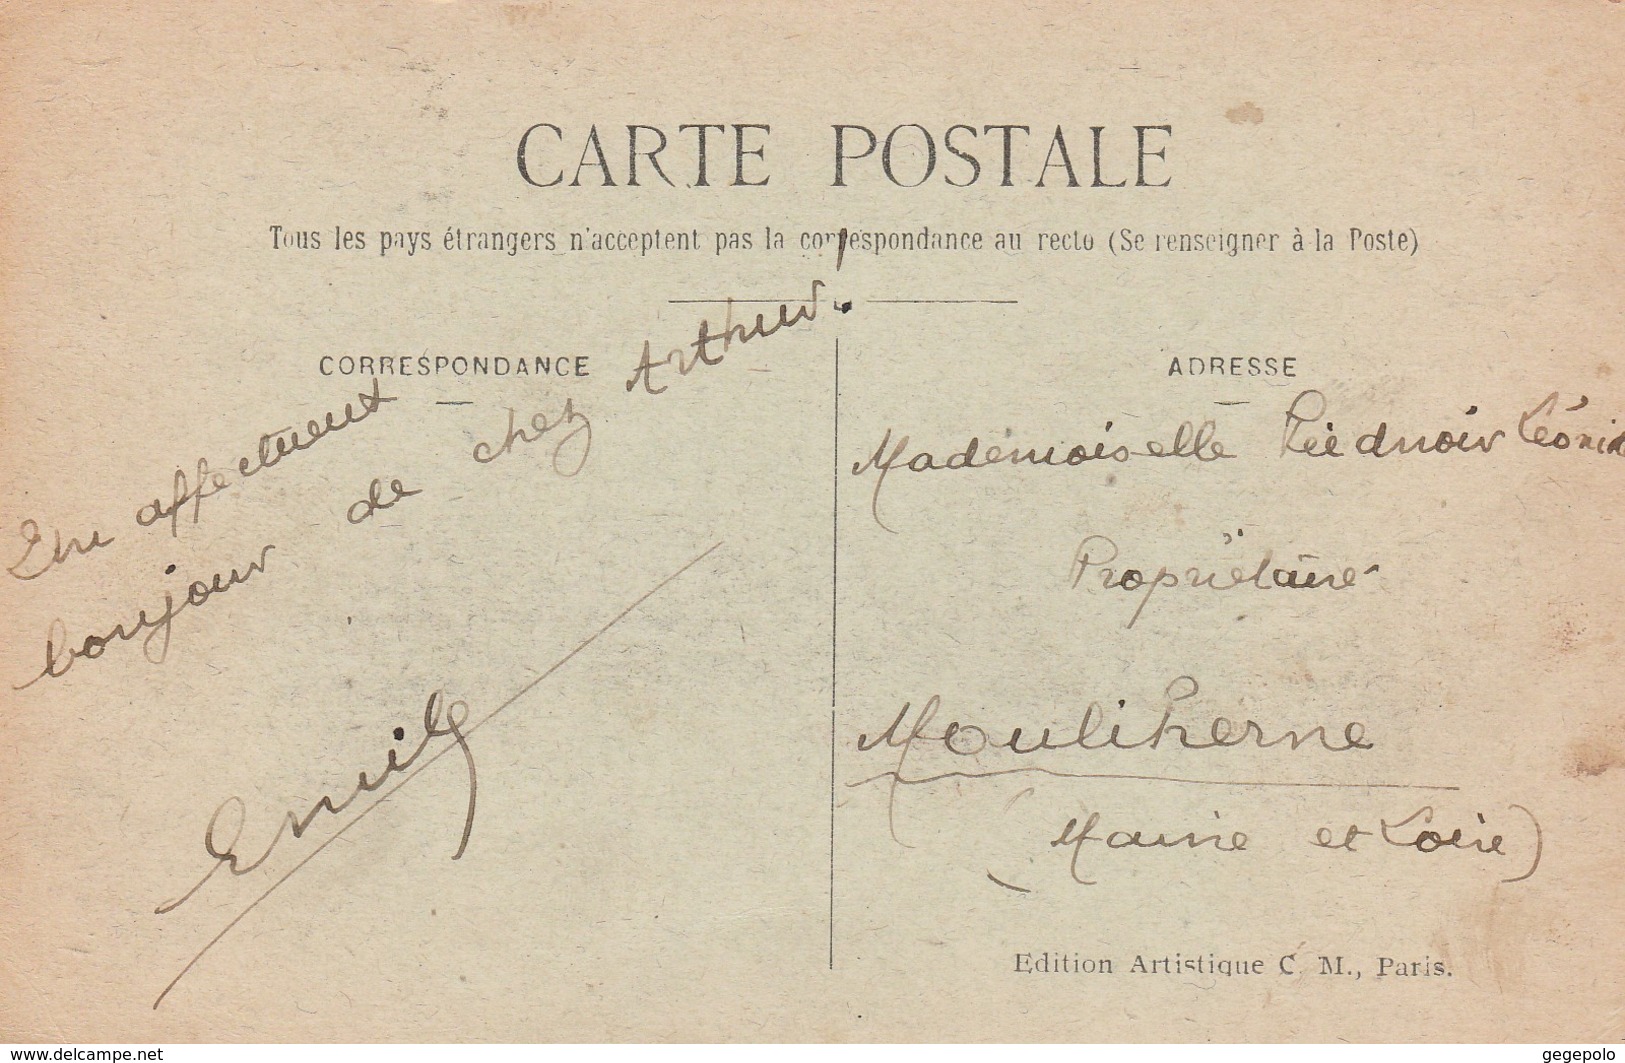 CARTE POSTALE
Tous les pays étrangers n'acceptent pas la correspondance au recto (Se renseigner à la Poste)
CORRESPONDANCE
Un affectueux
bonjour de chez Arthur.
Emile
ADRESSE
Mademoiselle Piednoir Léonie
Propriétaire
Mouliherne
(Maine et Loire)
Edition Artistique C. M., Paris.
www.delcampe.net
gegepolo